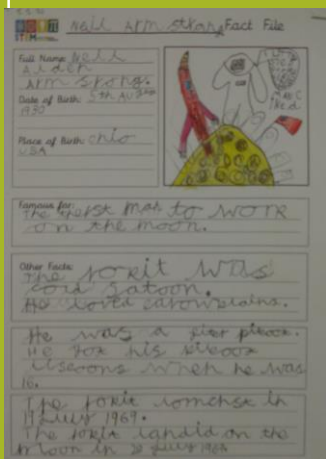 Neil Armstrong Fact File
Full Name: Neil
Alden
Armstrong.
Date of Birth: 5th August
1930
Place of Birth: Ohio
USA
Famous for:
The ferst man to work
on the moon.
Other Facts:
The rokit was
cold Satoon.
He lovid earowplains.
He was a
He got his
when he was
16.
The rokit in
1969.
The rokit landid on the
Moon in 20 July 1969